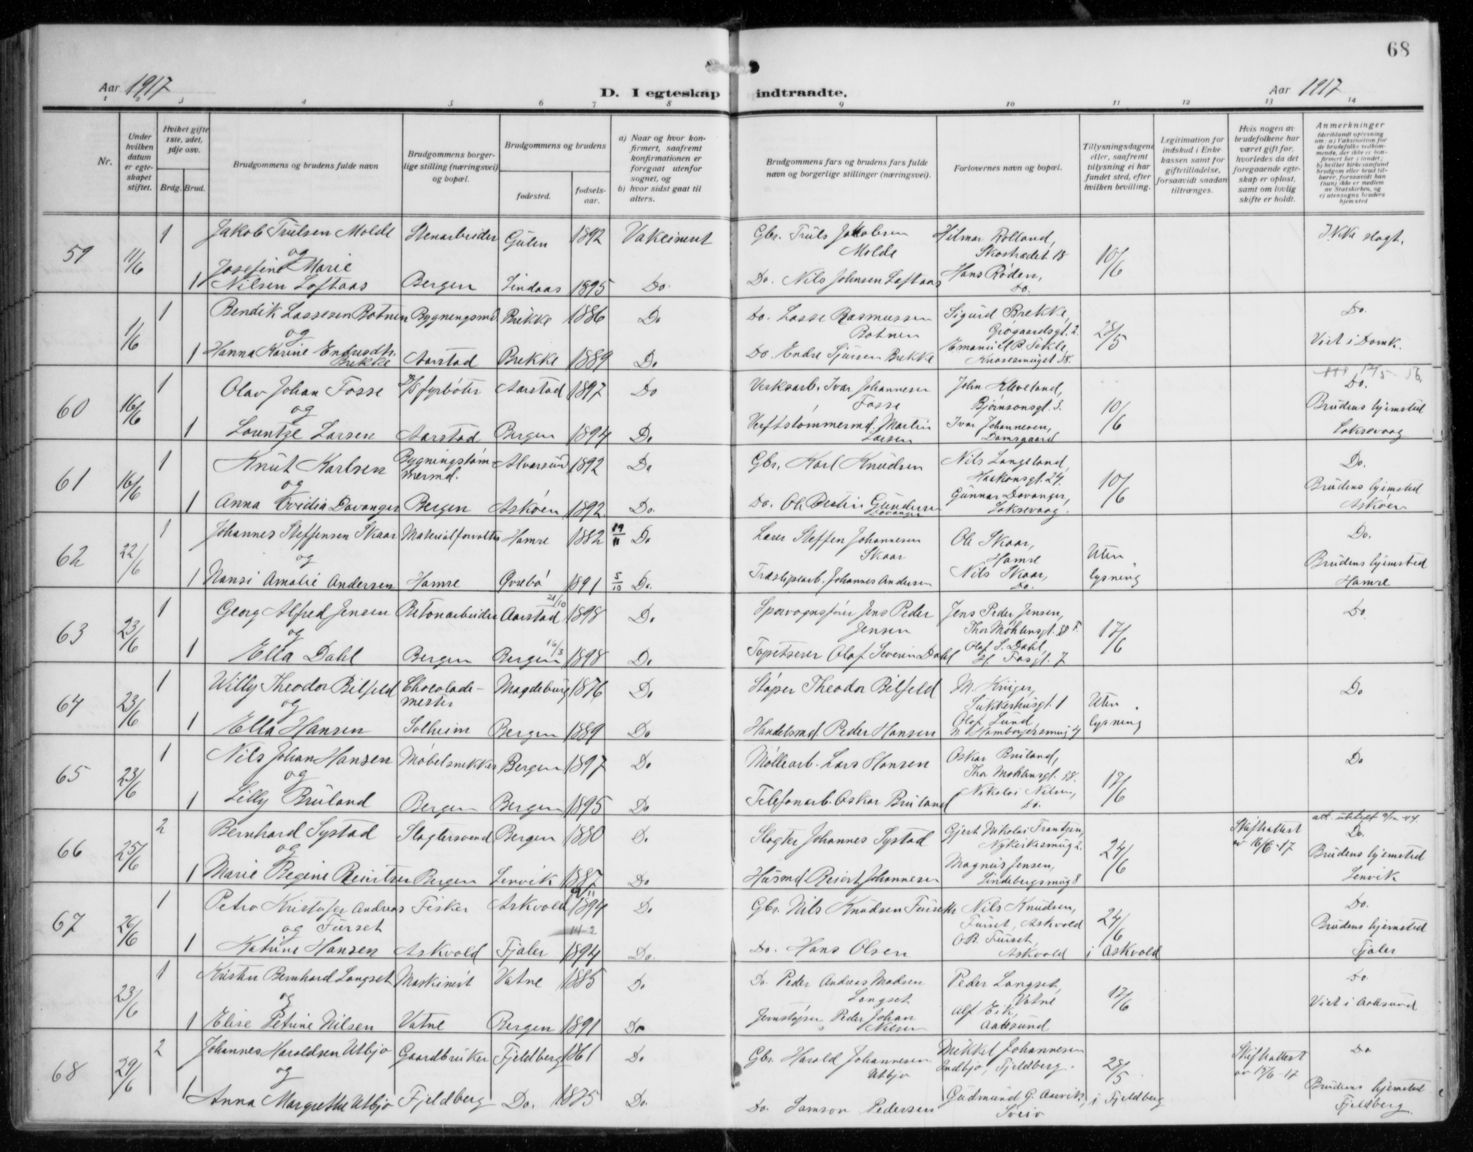 68
Aar 1917
D. I egteskap indtraadte.
Aar 1917
1 2 3 4 5 6 7 8 9 10 11 12 13 14
Nr.
Under hvilken datum er egteskapet stiftet.
Hvilket gifte 1ste, 2det, 3dje osv.
Brdg. Brud.
Brudgommens og brudens fulde navn
Brudgommens borgerlige stilling (næringsvei) og bopæl.
Brudgommens og brudens
fødested.
fødselsaar.
a) Naar og hvor konfirmert, saafremt konfirmationen er foregaat utenfor sognet, og
b) hvor sidst gaat til alters.
Brudgommens fars og brudens fars fulde navn og borgerlige stillinger (næringsvei).
Forlovernes navn og bopæl.
Tillysningsdagene eller, saafremt tillysning ei har fundet sted, efter hvilken bevilling.
Legitimation for indskud i Enkekassen samt for giftetilladelse, forsaavidt saadan tiltrænges.
Hvis nogen av brudefolkene har været gift før, hvorledes da det foregaaende egteskap er opløst, samt om lovlig skifte er holdt.
Anmerkninger
59 11/6 1 Jakob Trulsen Molde Stenarbeider Gulen 1892 Vakcinert Gbr. Truls Jakobsen Molde Hilmar Rolland, Skostrædet 18 10/6 Ikke slegt.
og
1 Josefine Marie Nilsen Loftaas Bergen Lindaas 1895 Do. Do. Nils Johnsen Loftaas Hans Røden, Do.
1/6 1 Bendik Lassesen Botnen Bygningsmd Brekke 1886 Do Do. Lasse Rasmussen Botnen Sigurd Brekke, 28/5 Do.
og
1 Hanna Karine Endresdtr. Brekke Aarstad Brekke 1889 Do Do. Endre Sjursen Brekke Viet i Domk.
60 16/6 1 Olav Johan Fosse fyrbøter Aarstad 1897 Do Verksarb. Ivar Johannesen Fosse John Kleveland, Bjørnsonsgt. 3. 10/6 Do.
og
1 Lorentze Larsen Aarstad Bergen 1894 Do Verftstømmermd. Martin Larsen Ivar Johannesen, Damsgaard Brudens hjemsted Laksevaag
61 16/6 1 Knut Karlsen Bygningstømmermd. Alversund 1892 Do Gbr. Karl Knudsen Nils Langeland, Haakonsgt. 24. 10/6 Do.
og
1 Anna Ovidia Davanger Bergen Askøen 1892 Do. Do. Ole Gundersen Davanger Gunnar Davanger, Laksevaag. Brudens hjemsted Askøen
62 22/6 1 Johannes Steffensen Skaar Materialforvalter Hamre 1882 19/11 Do Lærer Steffen Johannesen Skaar Ole Skaar, Hamre Uten lysning Do.
og
1 Nansi Amalie Andersen Hamre Øvrebø 1891 5/10 Do. Træsliperarb. Johannes Andersen Nils Skaar, Do. Brudens hjemsted Hamre
63 23/6 1 Georg Alfred Jensen Betonarbeider Aarstad 21/10 1898 Do Sporvognsfører Jens Peder Jensen Jens Peder Jensen, 17/6 Do
og
1 Ella Dahl Bergen Bergen 16/3 1898 Do Tapetserer Olaf Severin Dahl Olaf S. Dahl
64 23/6 1 Willy Theodor Bilfeld Chocolademester Magdeburg 1876 Do Støper Theodor Bilfeld M. Krüger, Sukkerhusgt. 1 Uten lysning Do
og
1 Ella Hansen Solheim Bergen 1889 Do Handelsmd Peder Hansen Olaf Lund,
65 23/6 1 Nils Johan Hansen Møbelsnekker Bergen 1897 Do Møllearb. Lars Hansen Oskar Bruland, 17/6 Do
og
1 Lilly Bruland Bergen Bergen 1895 Do Telefonarb. Oskar Bruland Nikolai Nilsen, Do.
66 25/6 2 Bernhard Systad Slagtersvend Bergen 1880 Do. Slagter Johannes Systad Gjert Nikolai Frantzen, Nykirkesmug 2. 24/6 Skifteattest av 16/6-17 Do.
og
1 Marie Regine Reiertsen Bergen Lenvik 1887 Do Husmd Reiert Johannesen Magnus Jensen, Lindebergsmug 8 Brudens hjemsted Lenvik
67 26/6 1 Petro Kristofer Andreas Furset Fisker Askvold 1894 Do Gbr. Nils Knudsen Furset Nils Knudsen, Furset, Askvold 24/6 i Askvold Do.
og
1 Katrine Hansen Askvold Fjaler 1894 Do. Do. Hans Olsen O.B. Furset, Askvold Brudens hjemsted Fjaler
23/6 1 Kristen Bernhard Langset Maskinist Vatne 1885 Do. Do Peder Andreas Madsen Langset Peder Langset, Vatne 17/6 Do
og
1 Elise Petrine Nilsen Vatne Bergen 1891 Do Jernstøper Peder Johan Nilsen Alf Eik, Aalesund Viet i Aalesund
68 29/6 2 Johannes Haroldsen Utbjo Gaardbruker Fjeldberg 1861 Do Gbr. Harold Johannesen Utbjo Mikkel Johannesen Indbjo, Fjeldberg. 28/5 i Fjeldberg Skifteattest Do
og
1 Anna Margrethe Utbjo Fjeldberg Do. 1875 Do. Do. Samson Pedersen Gudmund G. Sveio Brudens hjemsted Fjeldberg.